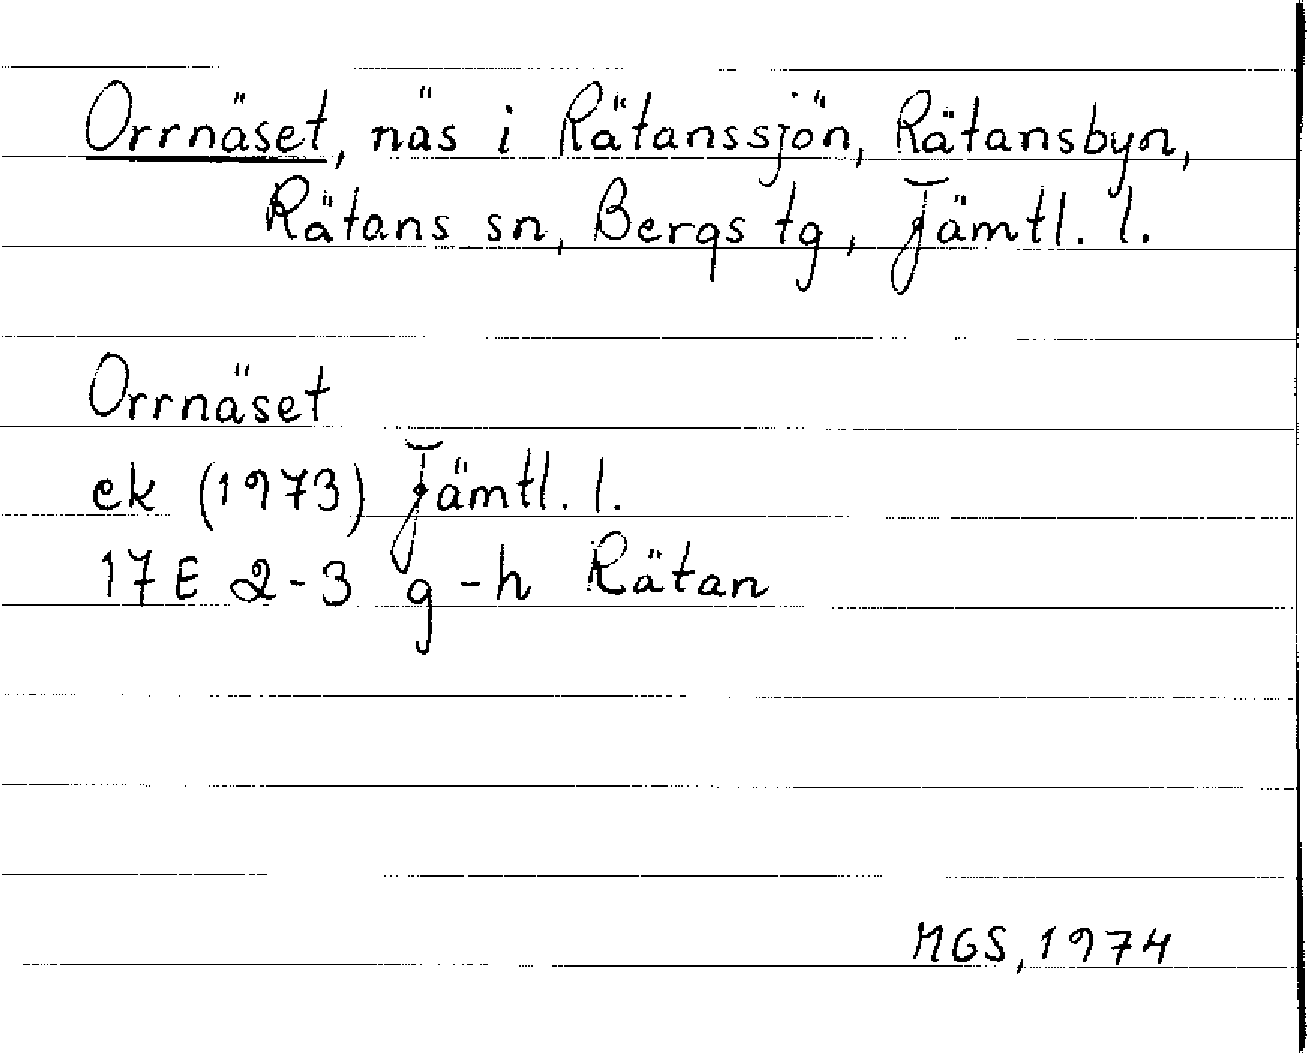 Orrnäset, näs i Rätanssjön, Rätansbyn,
Rätans sn, Bergs tg, Jämtl. l.
Orrnäset
ek (1973) Jämtl. l.
17E 2-3 g-h Rätan
MGS, 1974